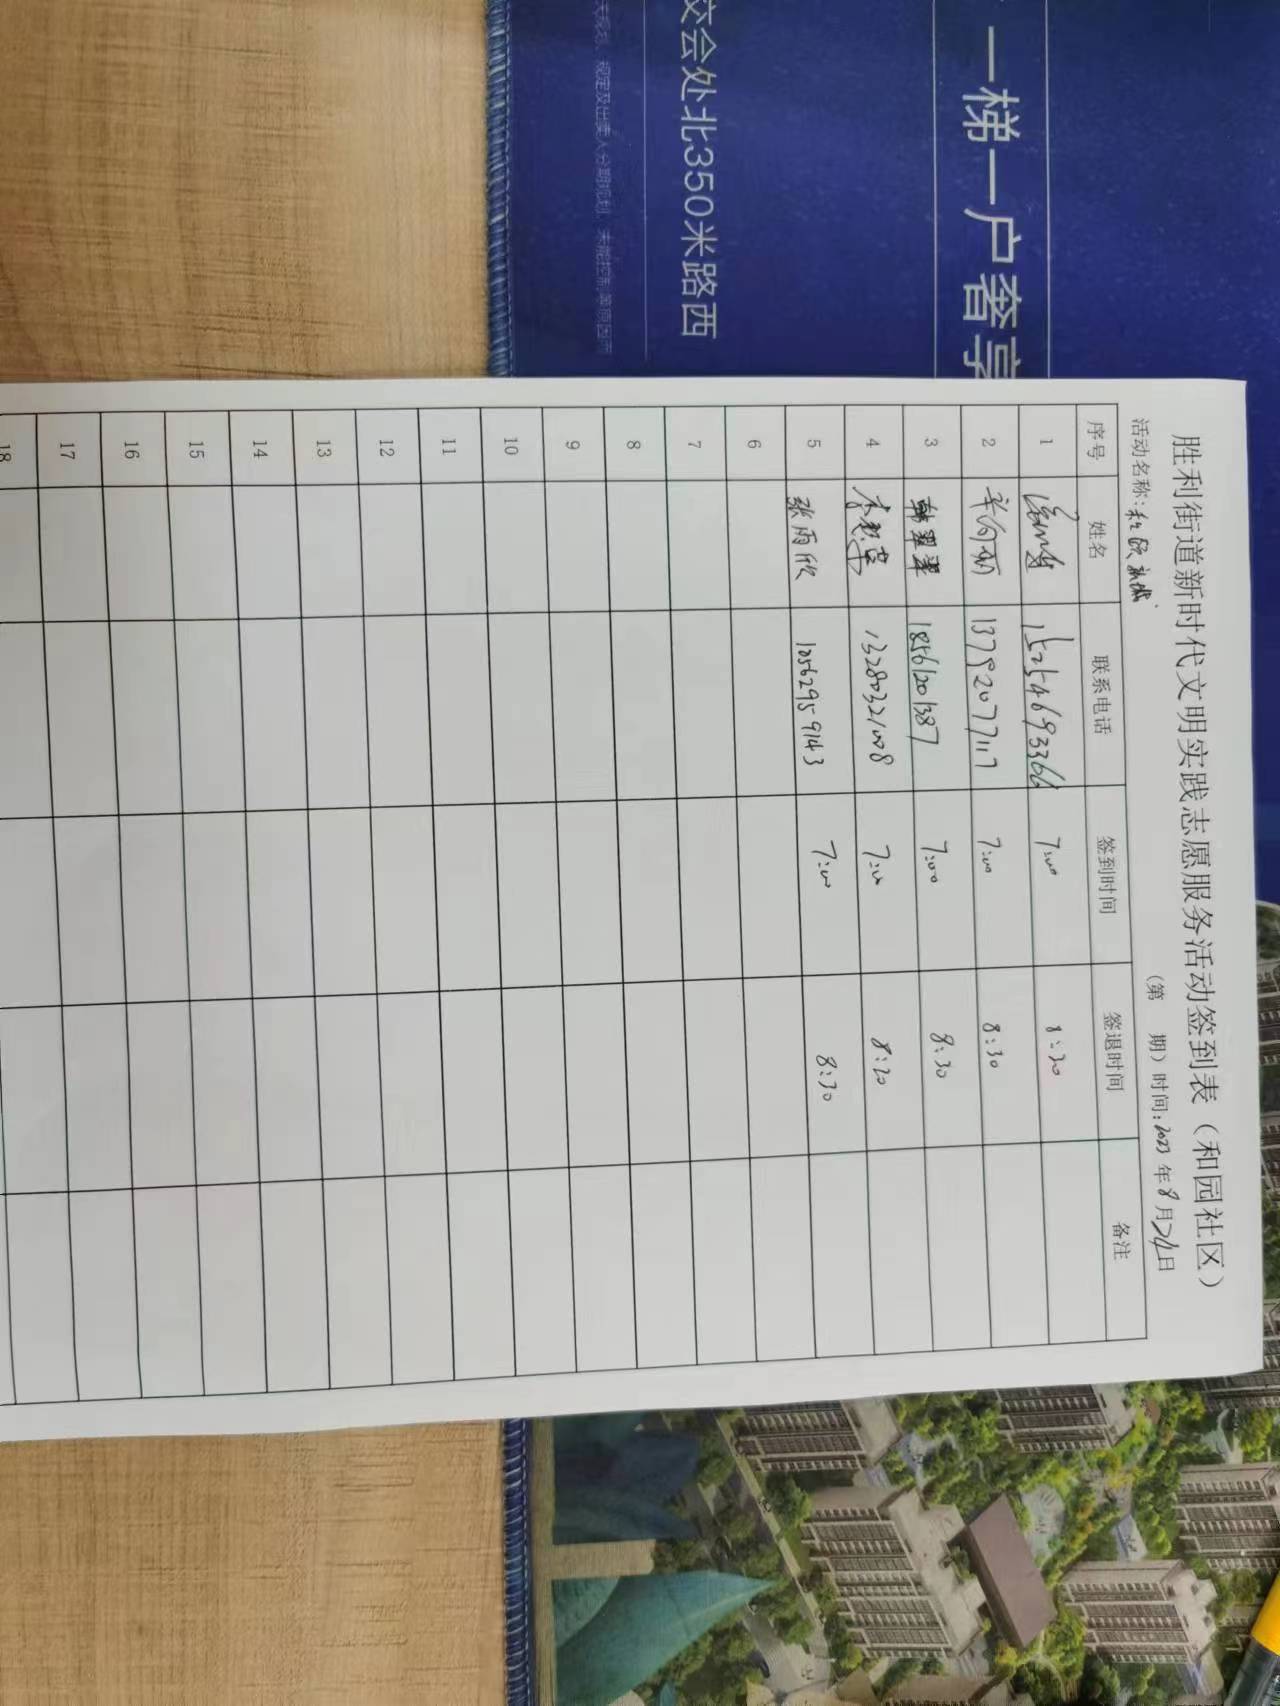 一梯一户奢享
交会处北350米路西
胜利街道新时代文明实践志愿服务活动签到表（和园社区）
活动名称： （第 期）时间：2023年8月24日
序号 姓名 联系电话 签到时间 签退时间 备注
1 15254693366 7:00 8:30
2 13792077117 7:00 8:30
3 韩翠翠 18561201387 7:00 8:30
4 13280321008 7:00 8:20
5 张雨欣 7:00 8:30
6
7
8
9
10
11
12
13
14
15
16
17
18